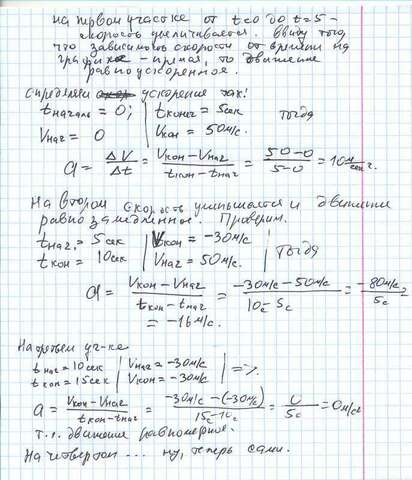 на первом участке от t=0 до t=5 -
скорость увеличивается. Ввиду того,
что зависимость скорости от времени на
графике - прямая, то движение
равноускоренное.
Определяем ускорение так:
tначало = 0; | tконеч = 5сек тогда
Vнач = 0 | Vкон = 50м/с.
a = ΔV/Δt = (Vкон - Vнач)/(tкон - tнач) = (50-0)/(5-0) = 10 м/сек².
На втором скорость уменьшается и движение
равнозамедленное. Проверим.
tнач = 5сек | Vкон = -30м/с
tкон = 10сек | Vнач = 50м/с. | Тогда
a = (Vкон - Vнач)/(tкон - tнач) = (-30м/с - 50м/с)/(10с - 5с) = -80м/с/5с =
= -16м/с.
На третьем уч-ке
tнач = 10сек | Vнач = -30м/с
tкон = 15сек | Vкон = -30м/с | =>
a = (Vкон - Vнач)/(tкон - tнач) = (-30м/с - (-30м/с))/(15с - 10с) = 0/5с = 0м/с²
т.е. движение равномерное.
На четвертом ... ну, теперь сами.